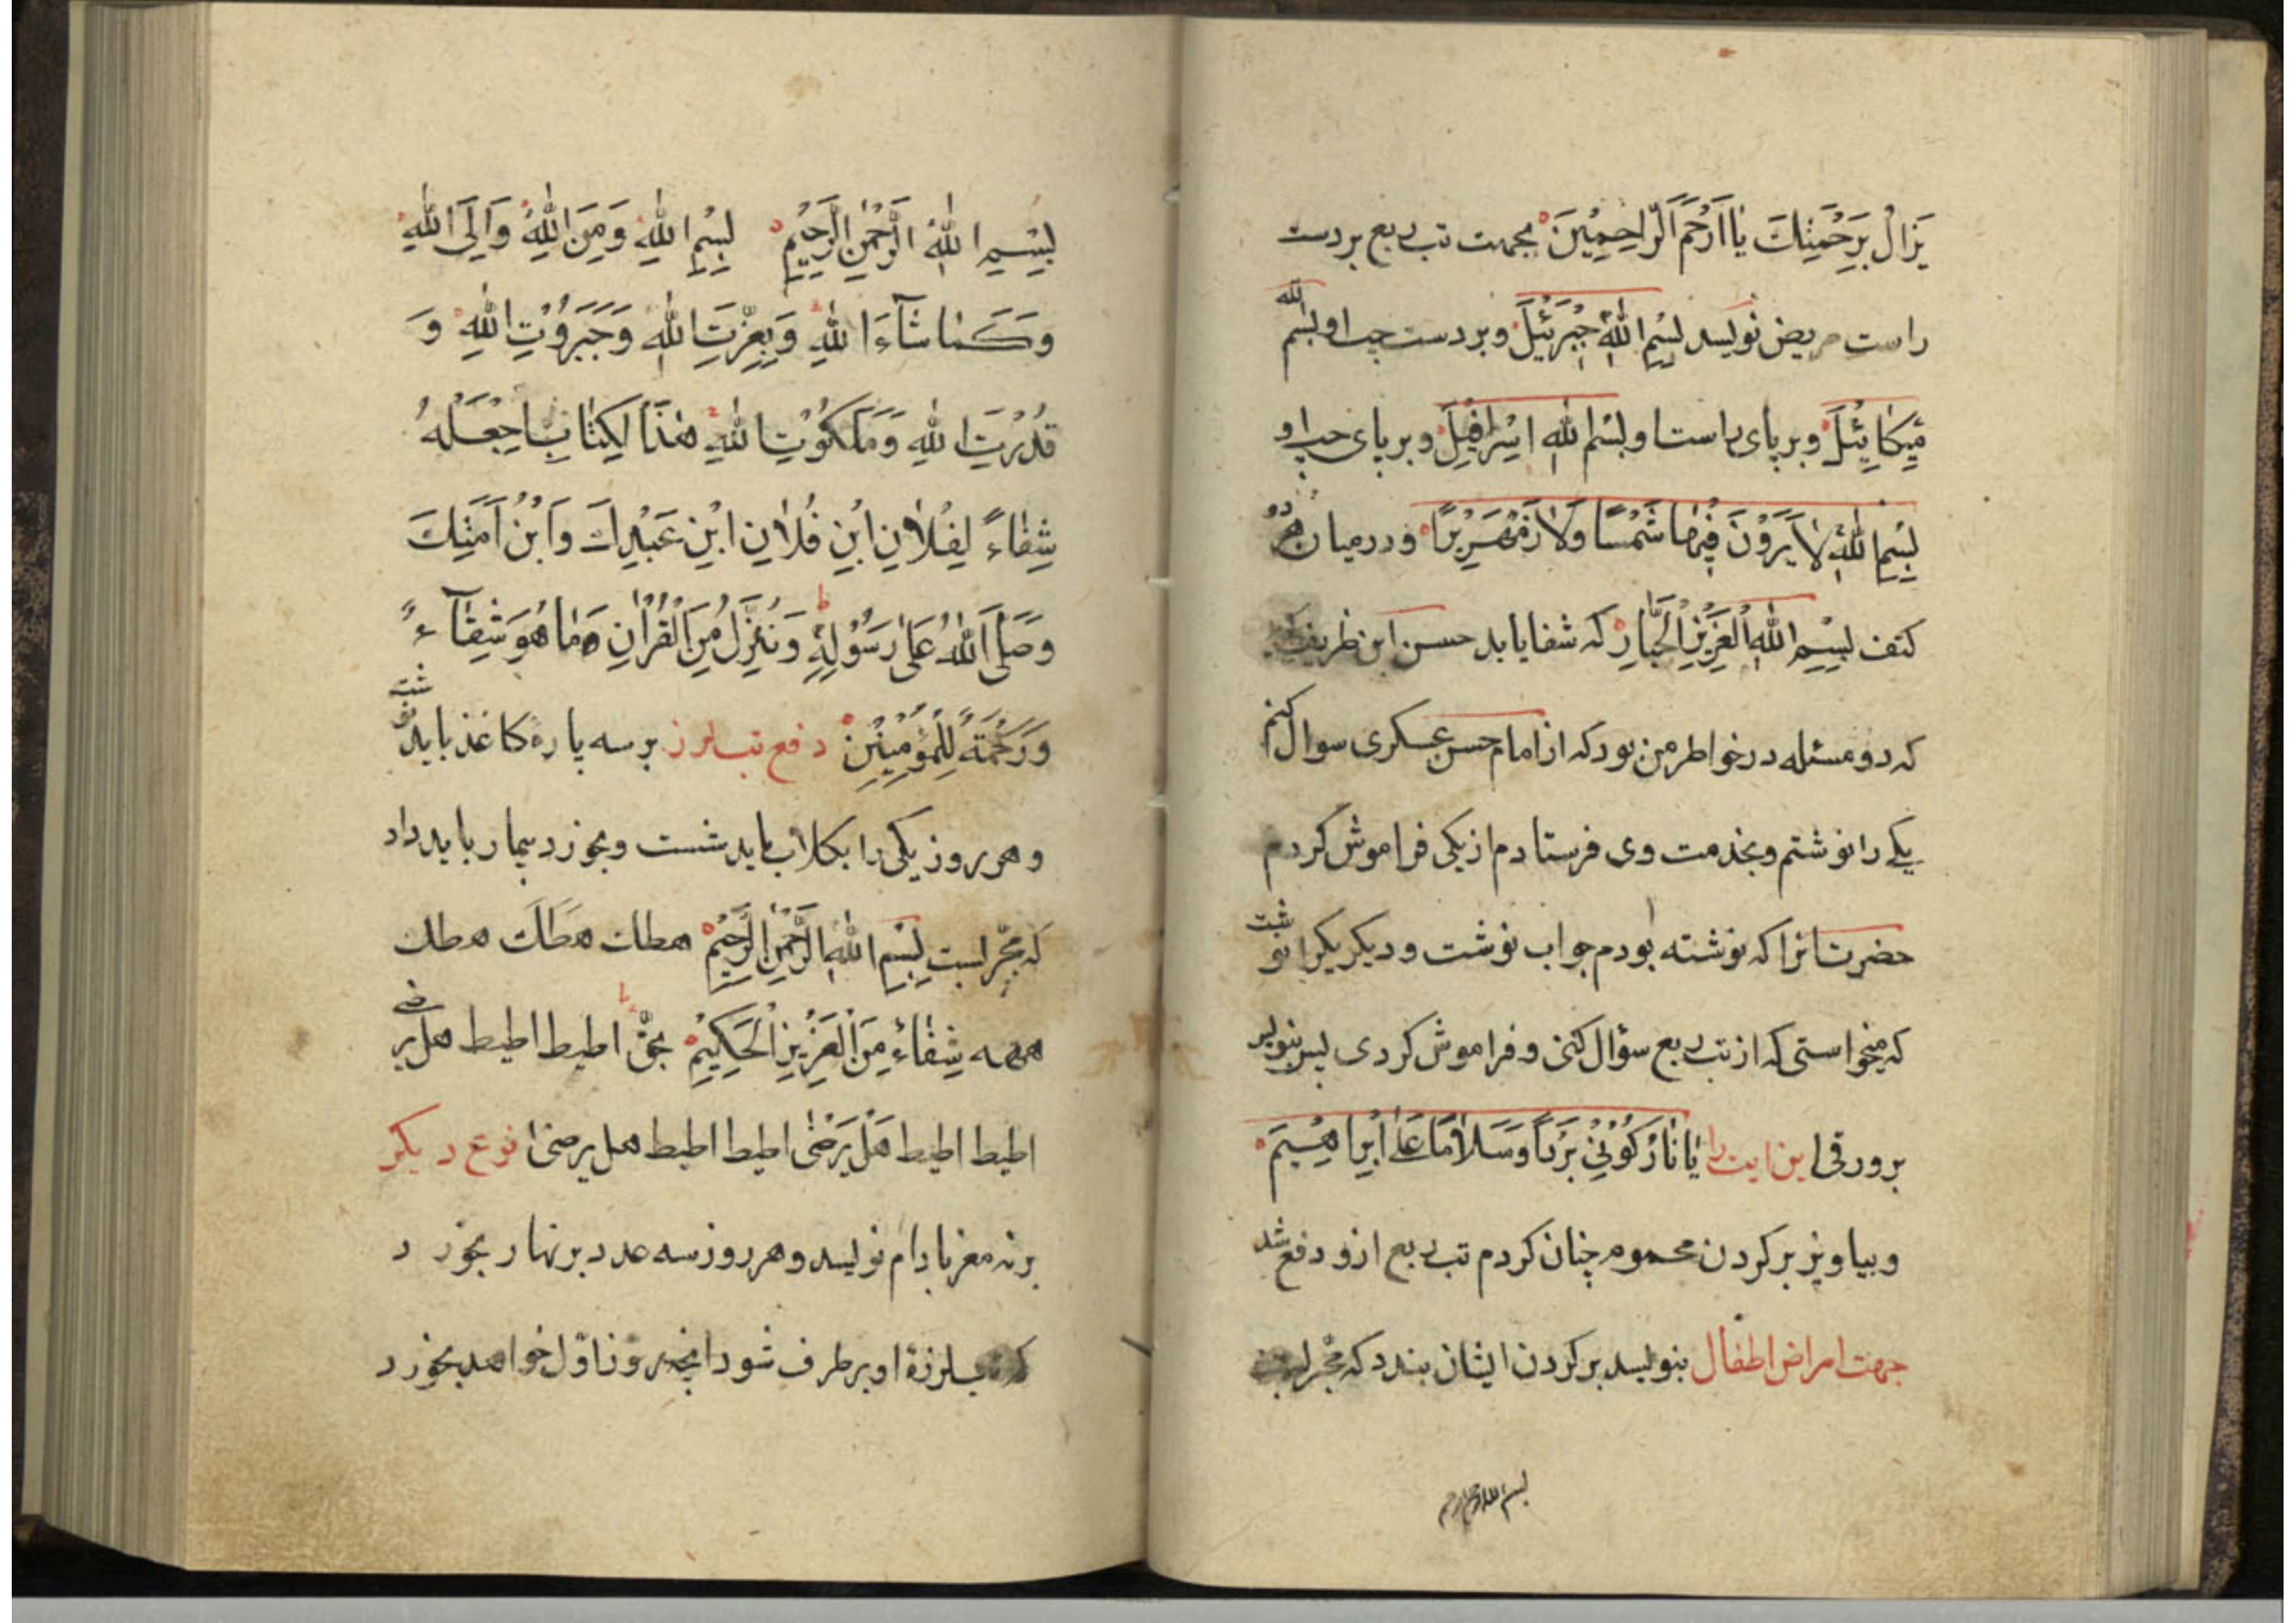 یَزَالُ بِرَحْمَتِكَ یَا اَرْحَمَ الرَّاحِمِیْنَ بجهت تب ربع بر دست
راست مریض نویسد بِسْمِ اللّٰهِ جِبْرَئِیْلَ و بر دست چپ او بسم الله
مِیْکَائِیْلَ و بر پای راست او بِسْمِ اللّٰهِ اِسْرَافِیْلَ و بر پای چپ او
بِسْمِ اللّٰهِ لَا یَرَوْنَ فِیْهَا شَمْسًا وَلَا زَمْهَرِیْرًا و در میان هر دو
کتف بِسْمِ اللّٰهِ الْعَزِیْزِ الْجَبَّارِ که شفا یابد حسن ابن ظریف
که دو مسئله در خواطر من بود که از امام حسن عسکری سوال کنم
یکے را نوشتم و بخدمت وی فرستادم از یکی فراموش کردم
حضرت انرا که نوشته بودم جواب نوشت و دیکر یکرا نوشت
که میخواستی که از تب ربع سؤال کنی و فراموش کردی پس بنویس
بر ورقی این ایت را یَا نَارُ کُوْنِیْ بَرْدًا وَسَلَامًا عَلٰی اِبْرَاهِیْمَ
و بیاویز بر کردن محموم چنان کردم تب ربع ازو دفع شد
جهت امراض اطفال بنویسد بر کردن ایشان بندد که مجرب است
بسم الله الرحمن الرحیم
بِسْمِ اللّٰهِ الرَّحْمٰنِ الرَّحِیْمِ بِسْمِ اللّٰهِ وَمِنَ اللّٰهِ وَاِلَی اللّٰهِ
وَکَمَا شَآءَ اللّٰهِ وَبِعِزَّتِ اللّٰهِ وَجَبَرُوْتِ اللّٰهِ وَ
قُدْرَتِ اللّٰهِ وَمَلَکُوْتِ اللّٰهِ هٰذَا الْکِتَابِ اجْعَلْهُ
شِفَاءً لِفُلَانِ ابْنِ فُلَانِ ابْنِ عَبْدِكَ وَابْنِ اَمَتِكَ
وَصَلَّی اللّٰهُ عَلٰی رَسُوْلِهِ وَنُنَزِّلُ مِنَ الْقُرْاٰنِ مَا هُوَ شِفَآءً
وَرَحْمَةٌ لِلْمُؤْمِنِیْنَ دفع تب لرز بر سه پاره کاغذ باید نوشت
و هر روز یکی را بکلاب باید شست و بخورد بیمار باید داد
که مجرب است بِسْمِ اللّٰهِ الرَّحْمٰنِ الرَّحِیْمِ هطلت هَطَلَت هطلت
همه شِفَاءٌ مِنَ الْعَزِیْزِ الْحَکِیْمِ بحقّ اطیط اطیط هل یرضی
اطیط اطیط هَلْ یَرْضٰی اطیط اطیط هل یرضی نوع دیکر
بر نه مغز بادام نویسد و هر روز سه عدد بر نهار بخورد
که تب لرزهٔ او بر طرف شود انچه روز اوّل خواهد بخورد